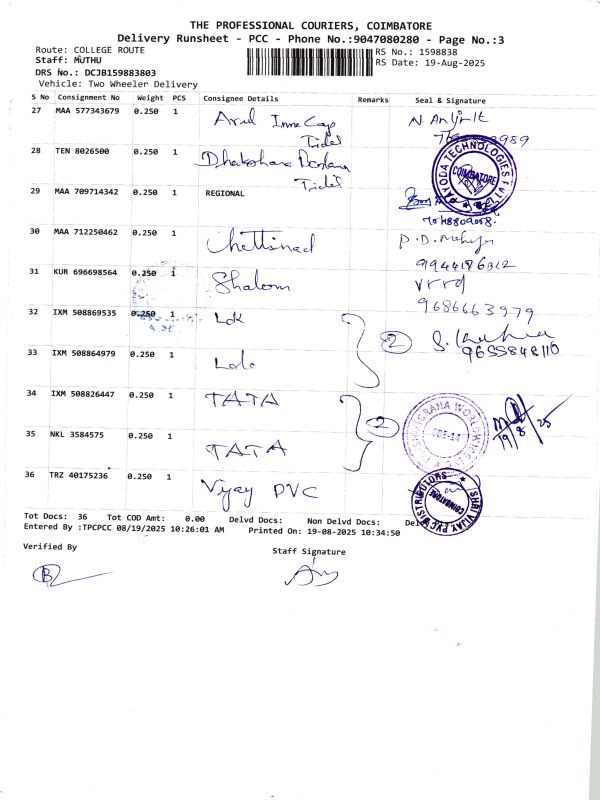 THE PROFESSIONAL COURIERS, COIMBATORE
Delivery Runsheet - PCC - Phone No.:9047080280 - Page No.:3
Route: COLLEGE ROUTE RS No.: 1598838
Staff: MUTHU RS Date: 19-Aug-2025
DRS No.: DCJB159883803
Vehicle: Two Wheeler Delivery
S No Consignment No Weight PCS Consignee Details Remarks Seal & Signature
27 MAA 577343679 0.250 1
Tidel
28 TEN 8026500 0.250 1
Tidel
29 MAA 709714342 0.250 1 REGIONAL
COIMBATORE
30 MAA 712250462 0.250 1 Chettinad
31 KUR 696698564 0.250 1 Shalom
9686663979
32 IXM 508869535 0.250 1 Lok
2
9655848110
33 IXM 508864979 0.250 1
34 IXM 508826447 0.250 1 TATA
2
19/8/25
35 NKL 3584575 0.250 1 TATA
36 TRZ 40175236 0.250 1 Vijay PVC
SHRI VIJAY PVC DISTRIBUTORS
COIMBATORE
Tot Docs: 36 Tot COD Amt: 0.00 Delvd Docs: Non Delvd Docs:
Entered By :TPCPCC 08/19/2025 10:26:01 AM Printed On: 19-08-2025 10:34:50
Verified By Staff Signature